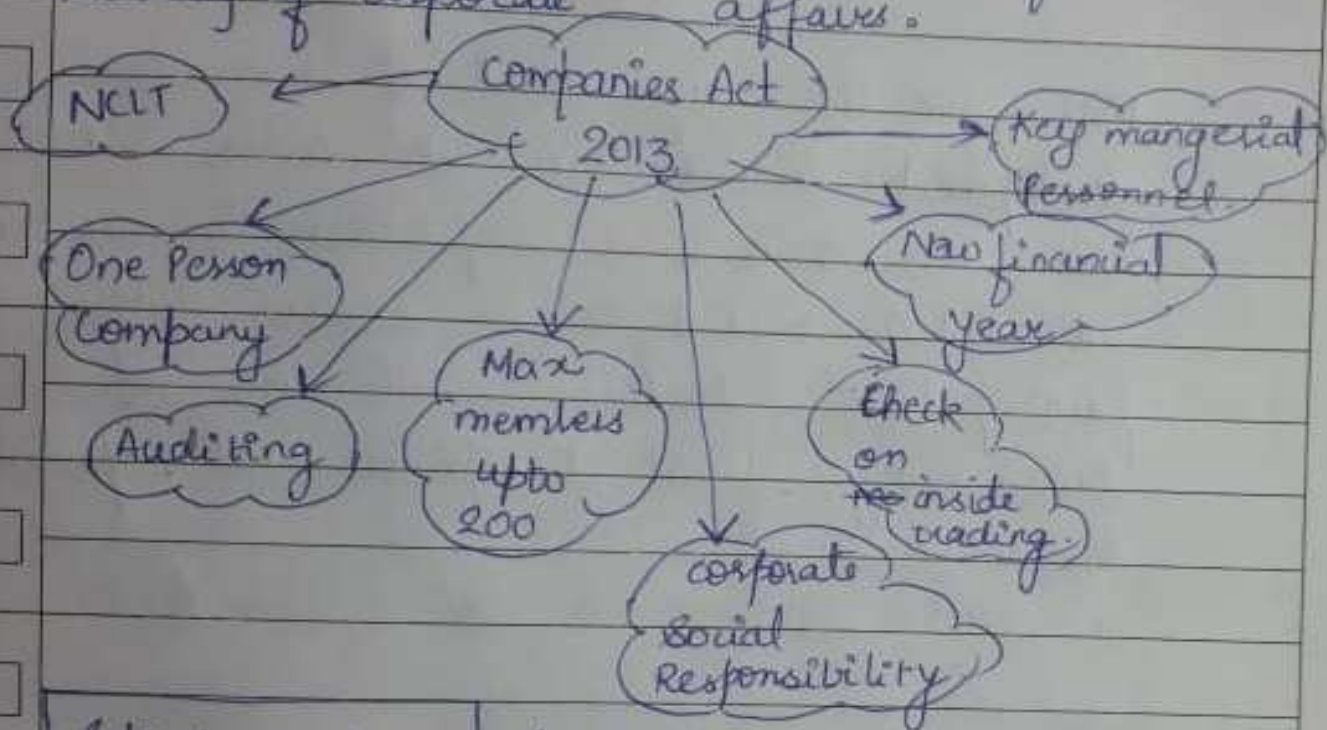 of corporate affairs.
Companies Act
2013
NCLT
Key mangerial
Personnel.
One Person
Company
New financial
year
Auditing
Max
members
upto
200
Check
on
inside
trading.
corporate
Social
Responsibility